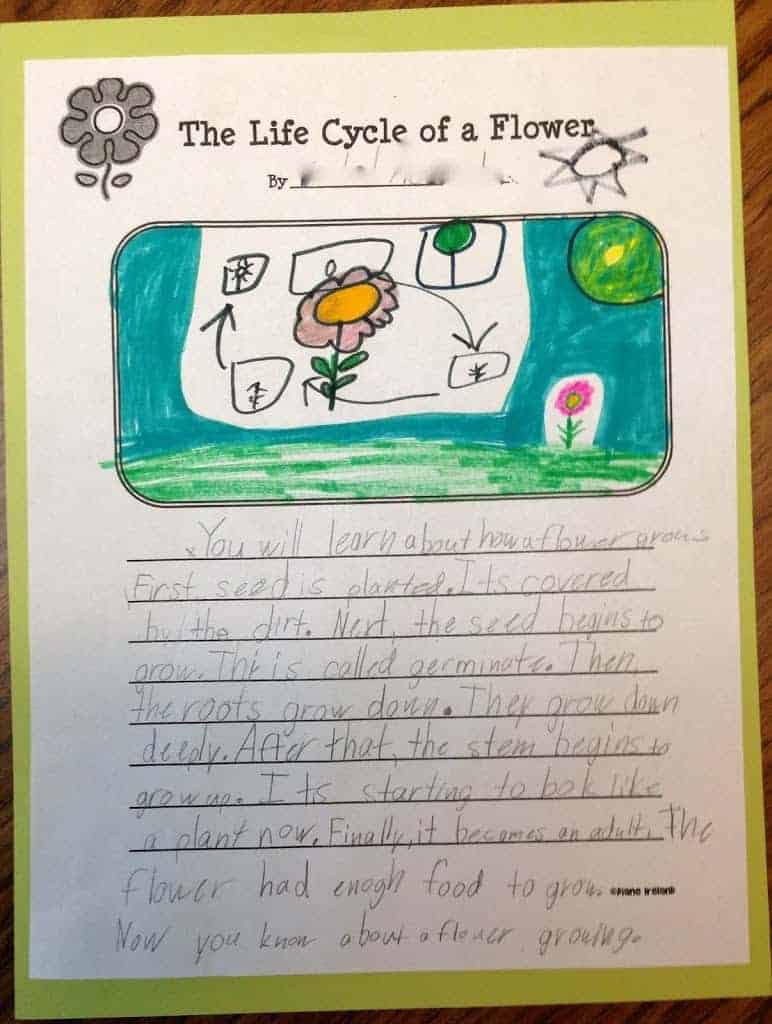 The Life Cycle of a Flower
By
You will learn about how a flower grows
First seed is planted. Its covered
by the dirt. Next, the seed begins to
grow. Thi is called germinate. Then,
the roots grow down. They grow down
deeply. After that, the stem begins to
grow up. Its starting to look like
a plant now. Finally, it becomes an adult. The
flower had enogh food to grow.
Now you know about a flower growing.